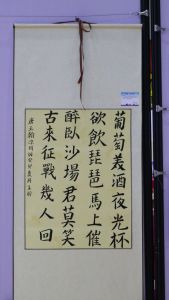 葡萄美酒夜光杯
欲飲琵琶馬上催
醉臥沙場君莫笑
古來征戰幾人回